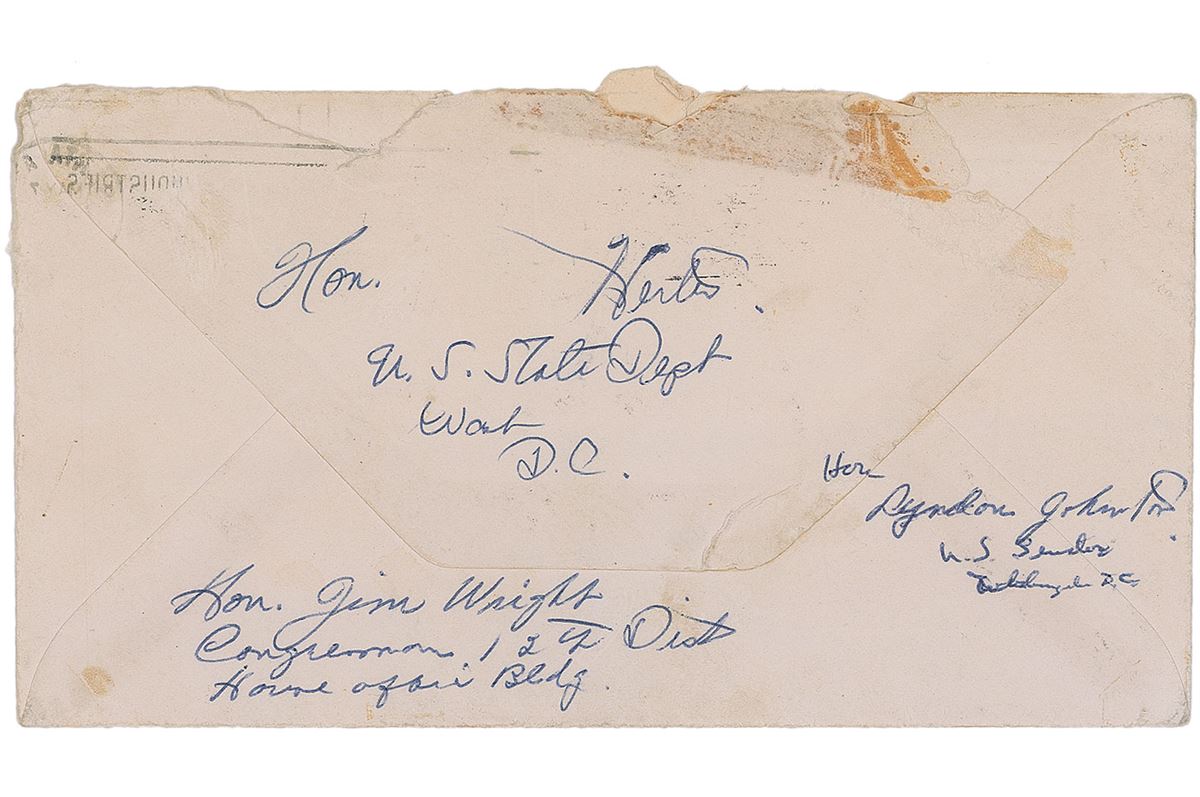 INDUSTRIES
Hon. Herter.
U. S. State Dept
Wash
D.C.
Hon
Lyndon Johnson.
U.S Senator
D.C.
Hon. Jim Wright
Congressman 12th Dist
House office Bldg.